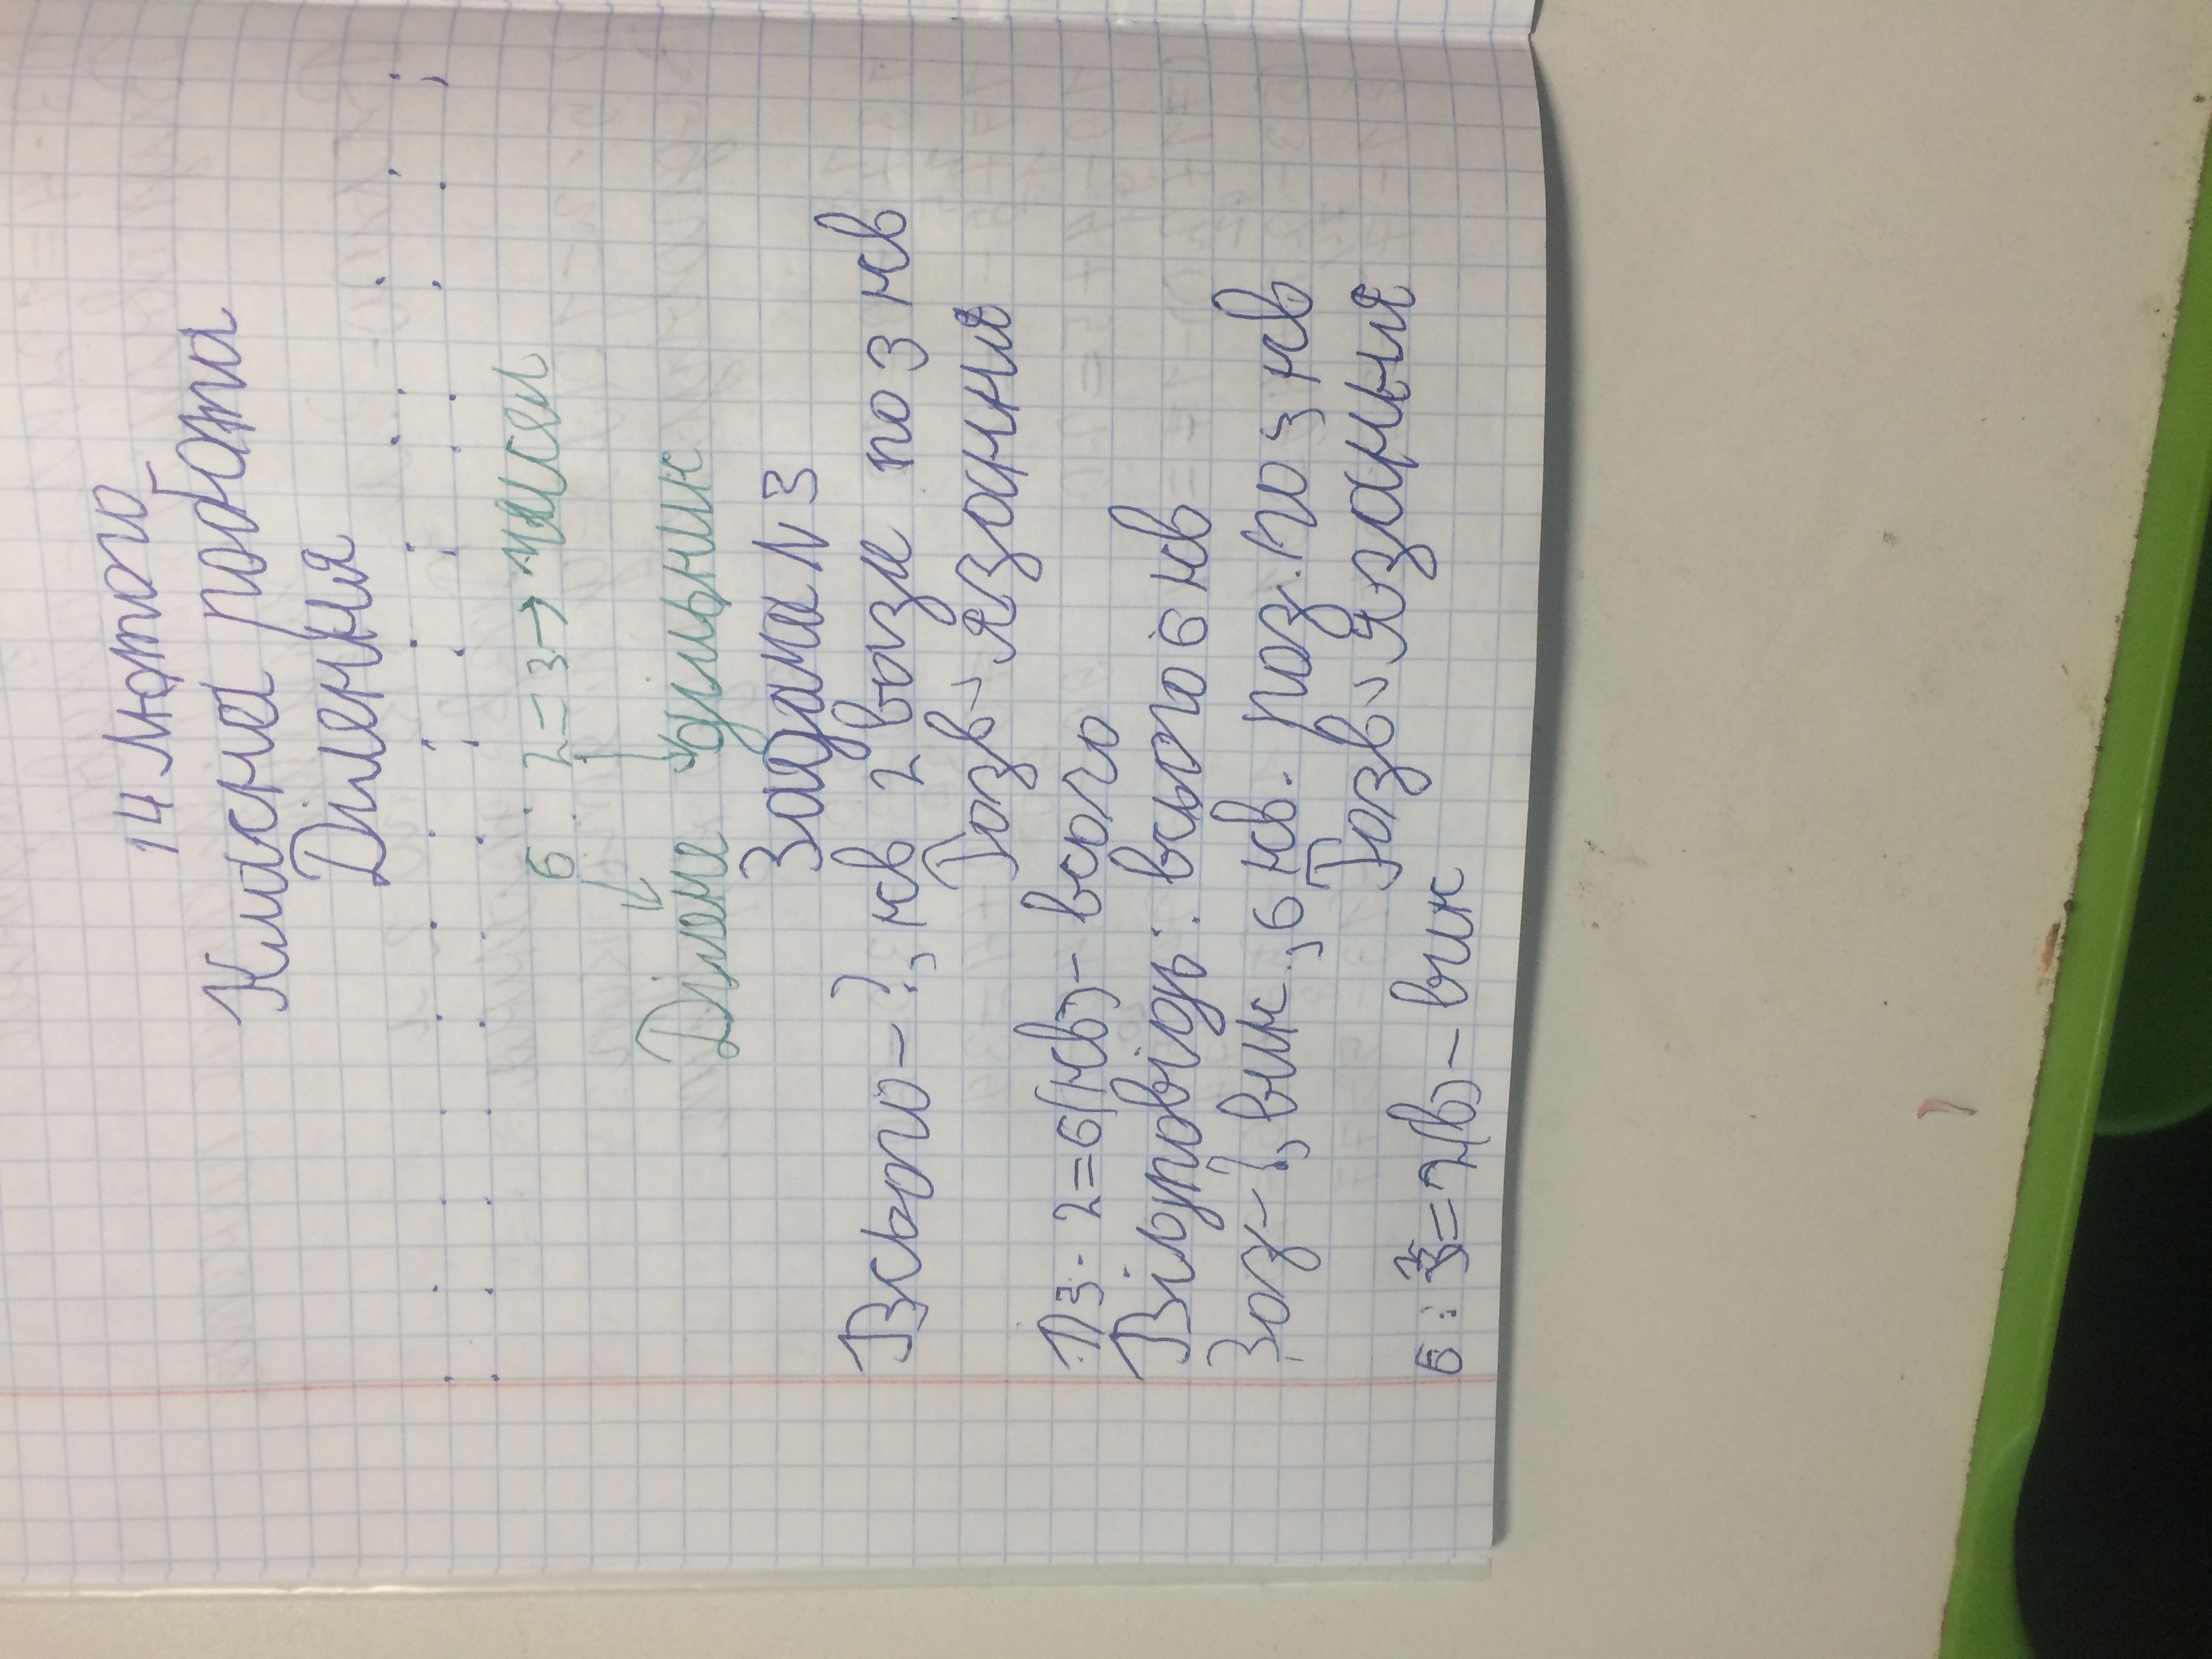 14 Лютого
Класна робота
Ділення
6 : 2 = 3 → чисел
Ділене дільник
Задача N 3
Всього - ?, кв 2 вази по 3 кв
Розв'язання
1) 3 · 2 = 6 (кв) - всого
Відповідь: всього 6 кв
Ваз - ?, вик., 6 кв. роз. по 3 кв
Розв'язання
6 : 3 = 2 (в) - вик